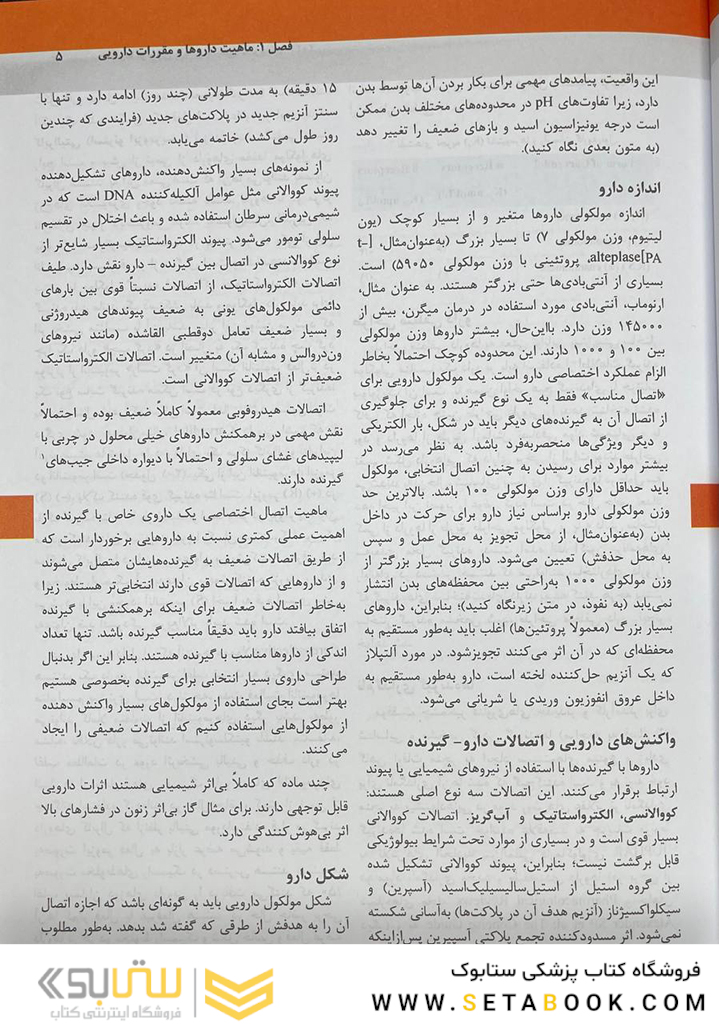 فصل ۱: ماهیت داروها و مقررات دارویی ۵
این واقعیت، پیامدهای مهمی برای بکار بردن آن‌ها توسط بدن
دارد، زیرا تفاوت‌های pH در محدوده‌های مختلف بدن ممکن
است درجه یونیزاسیون اسید و بازهای ضعیف را تغییر دهد
(به متون بعدی نگاه کنید).
اندازه دارو
اندازه مولکولی داروها متغیر و از بسیار کوچک (یون
لیتیوم، وزن مولکولی ۷) تا بسیار بزرگ (به‌عنوان‌مثال، [t-
alteplase[PA، پروتئینی با وزن مولکولی ۵۹۰۵۰) است.
بسیاری از آنتی‌بادی‌ها حتی بزرگتر هستند. به عنوان مثال،
ارنوماب، آنتی‌بادی مورد استفاده در درمان میگرن، بیش از
۱۴۵۰۰۰ وزن دارد. بااین‌حال، بیشتر داروها وزن مولکولی
بین ۱۰۰ و ۱۰۰۰ دارند. این محدوده کوچک احتمالاً بخاطر
الزام عملکرد اختصاصی دارو است. یک مولکول دارویی برای
«اتصال مناسب» فقط به یک نوع گیرنده و برای جلوگیری
از اتصال آن به گیرنده‌های دیگر باید در شکل، بار الکتریکی
و دیگر ویژگی‌ها منحصربه‌فرد باشد. به نظر می‌رسد در
بیشتر موارد برای رسیدن به چنین اتصال انتخابی، مولکول
باید حداقل دارای وزن مولکولی ۱۰۰ باشد. بالاترین حد
وزن مولکولی دارو براساس نیاز دارو برای حرکت در داخل
بدن (به‌عنوان‌مثال، از محل تجویز به محل عمل و سپس
به محل حذفش) تعیین می‌شود. داروهای بسیار بزرگتر از
وزن مولکولی ۱۰۰۰ به‌راحتی بین محفظه‌های بدن انتشار
نمی‌یابد (به نفوذ، در متن زیرنگاه کنید)؛ بنابراین، داروهای
بسیار بزرگ (معمولاً پروتئین‌ها) اغلب باید به‌طور مستقیم به
محفظه‌ای که در آن اثر می‌کنند تجویزشود. در مورد آلتپلاز
که یک آنزیم حل‌کننده لخته است، دارو به‌طور مستقیم به
داخل عروق انفوزیون وریدی یا شریانی می‌شود.
واکنش‌های دارویی و اتصالات دارو- گیرنده
داروها با گیرنده‌ها با استفاده از نیروهای شیمیایی یا پیوند
ارتباط برقرار می‌کنند. این اتصالات سه نوع اصلی هستند:
کووالانسی، الکترواستاتیک و آب‌گریز. اتصالات کووالانی
بسیار قوی است و در بسیاری از موارد تحت شرایط بیولوژیکی
قابل برگشت نیست؛ بنابراین، پیوند کووالانی تشکیل شده
بین گروه استیل از استیل‌سالیسیلیک‌اسید (آسپرین) و
سیکلواکسیژناز (آنزیم هدف آن در پلاکت‌ها) به‌آسانی شکسته
نمی‌شود. اثر مسدودکننده تجمع پلاکتی آسپیرین پس‌ازاینکه
۱۵ دقیقه) به مدت طولانی (چند روز) ادامه دارد و تنها با
سنتز آنزیم جدید در پلاکت‌های جدید (فرایندی که چندین
روز طول می‌کشد) خاتمه می‌یابد.
از نمونه‌های بسیار واکنش‌دهنده، داروهای تشکیل‌دهنده
پیوند کووالانی مثل عوامل آلکیله‌کننده DNA است که در
شیمی‌درمانی سرطان استفاده شده و باعث اختلال در تقسیم
سلولی تومور می‌شود. پیوند الکترواستاتیک بسیار شایع‌تر از
نوع کووالانسی در اتصال بین گیرنده – دارو نقش دارد. طیف
اتصالات الکترواستاتیک، از اتصالات نسبتاً قوی بین بارهای
دائمی مولکول‌های یونی به ضعیف پیوندهای هیدروژنی
و بسیار ضعیف تعامل دوقطبی القاشده (مانند نیروهای
ون‌دروالس و مشابه آن) متغییر است. اتصالات الکترواستاتیک
ضعیف‌تر از اتصالات کووالانی است.
اتصالات هیدروفوبی معمولاً کاملاً ضعیف بوده و احتمالاً
نقش مهمی در برهمکنش داروهای خیلی محلول در چربی با
لیپیدهای غشای سلولی و احتمالاً با دیواره داخلی جیب‌های۱
گیرنده دارند.
ماهیت اتصال اختصاصی یک داروی خاص با گیرنده از
اهمیت عملی کمتری نسبت به داروهایی برخوردار است که
از طریق اتصالات ضعیف به گیرنده‌هایشان متصل می‌شوند
و از داروهایی که اتصالات قوی دارند انتخابی‌تر هستند. زیرا
به‌خاطر اتصالات ضعیف برای اینکه برهمکنشی با گیرنده
اتفاق بیافتد دارو باید دقیقاً مناسب گیرنده باشد. تنها تعداد
اندکی از داروها مناسب با گیرنده هستند. بنابر این اگر بدنبال
طراحی داروی بسیار انتخابی برای گیرنده بخصوصی هستیم
بهتر است بجای استفاده از مولکول‌های بسیار واکنش دهنده
از مولکول‌هایی استفاده کنیم که اتصالات ضعیفی را ایجاد
می‌کنند.
چند ماده که کاملاً بی‌اثر شیمیایی هستند اثرات دارویی
قابل توجهی دارند. برای مثال گاز بی‌اثر زنون در فشارهای بالا
اثر بی‌هوش‌کنندگی دارد.
شکل دارو
شکل مولکول دارویی باید به گونه‌ای باشد که اجازه اتصال
آن را به هدفش از طرقی که گفته شد بدهد. به‌طور مطلوب
فروشگاه کتاب پزشکی ستابوک
WWW.SETABOOK.COM
ستابوک
فروشگاه اینترنتی کتاب